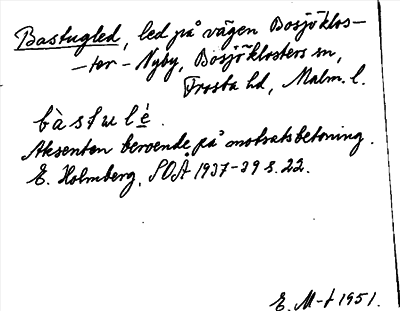 Bastugled, led på vägen Bosjöklos-
-ter - Nyby, Bosjöklosters sn,
Frosta hd, Malm. l.
bàstulè.
Aksenten beroende på motsatsbetoning.
E. Holmberg, SOÅ 1937-39 s. 22.
E. M-t 1951.